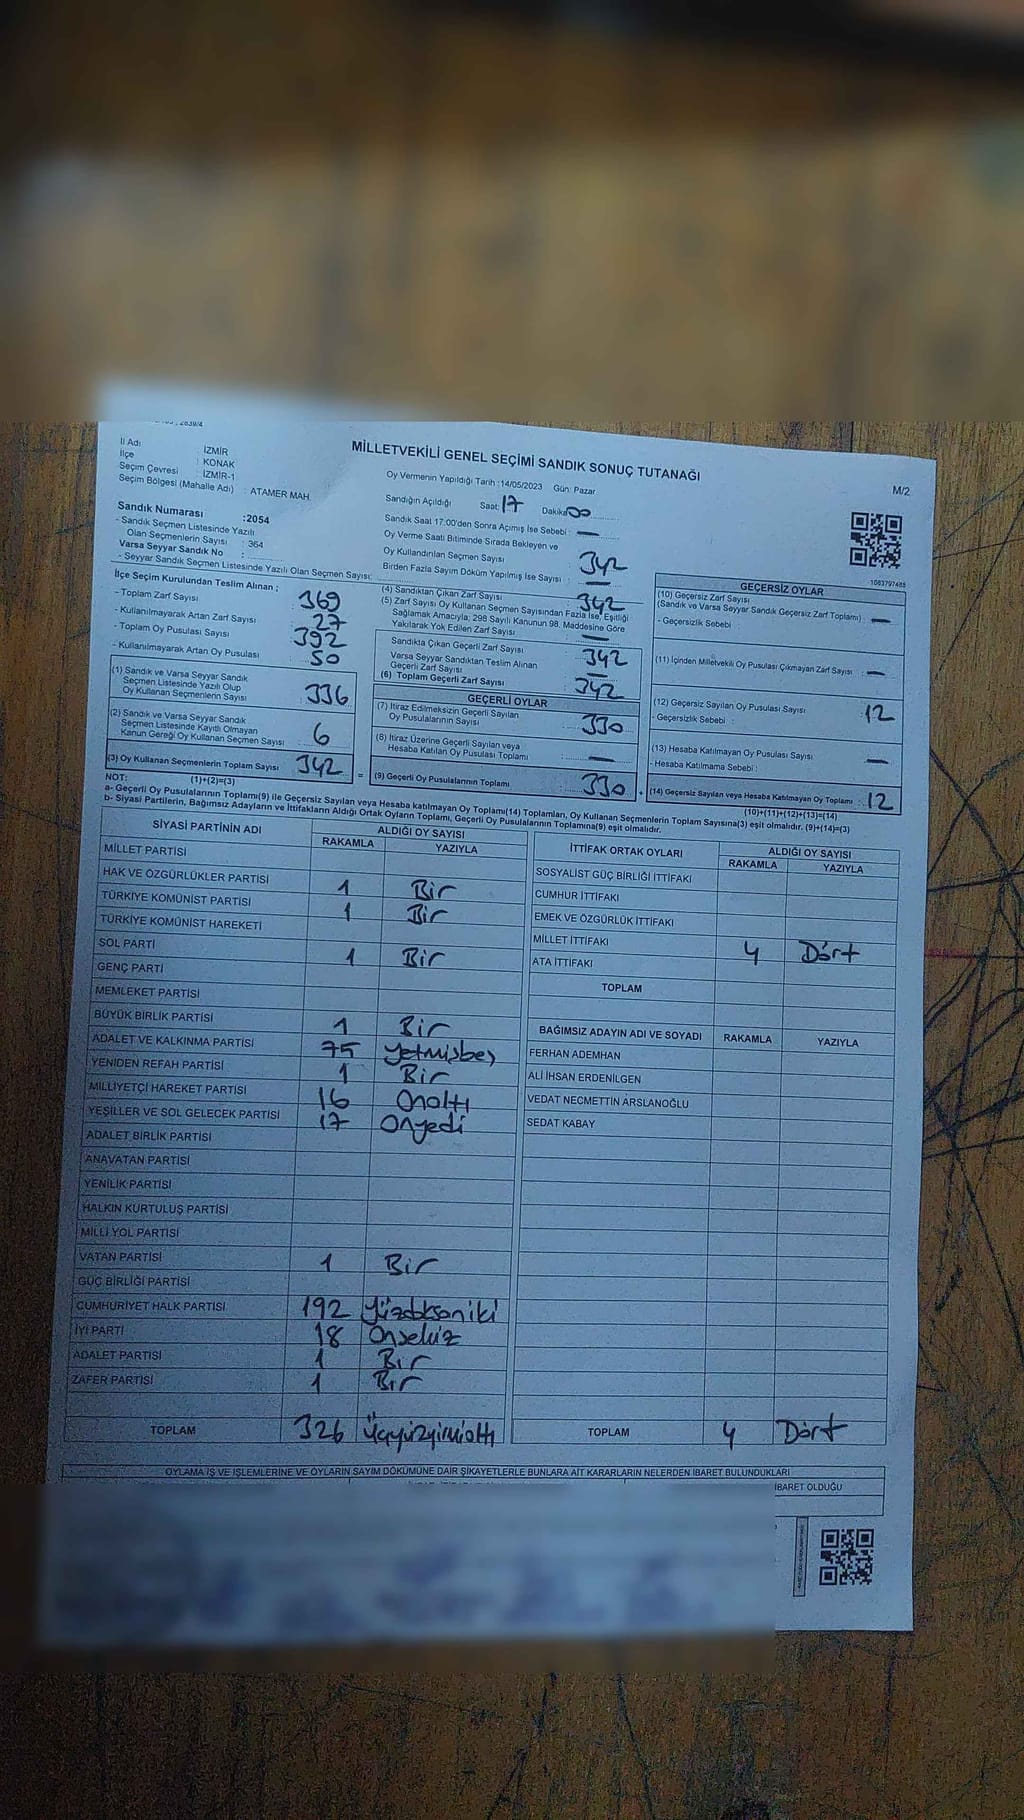 MİLLETVEKİLİ GENEL SEÇİMİ SANDIK SONUÇ TUTANAĞI
M/2
İl Adı : İZMİR
İlçe : KONAK
Seçim Çevresi : İZMİR-1
Seçim Bölgesi (Mahalle Adı) : ATAMER MAH.
Sandık Numarası :2054
- Sandık Seçmen Listesinde Yazılı
Olan Seçmenlerin Sayısı : 364
Varsa Seyyar Sandık No :
- Seyyar Sandık Seçmen Listesinde Yazılı Olan Seçmen Sayısı:
Oy Vermenin Yapıldığı Tarih :14/05/2023 Gün: Pazar
Sandığın Açıldığı Saat: 17 Dakika 00
Sandık Saat 17:00'den Sonra Açımış İse Sebebi : —
Oy Verme Saati Bitiminde Sırada Bekleyen ve
Oy Kullandırılan Seçmen Sayısı : 342
Birden Fazla Sayım Döküm Yapılmış İse Sayısı : —
1083797485
İlçe Seçim Kurulundan Teslim Alınan ;
- Toplam Zarf Sayısı : 369
- Kullanılmayarak Artan Zarf Sayısı : 27
- Toplam Oy Pusulası Sayısı : 392
- Kullanılmayarak Artan Oy Pusulası : 50
(1) Sandık ve Varsa Seyyar Sandık
Seçmen Listesinde Yazılı Olup
Oy Kullanan Seçmenlerin Sayısı : 336
(2) Sandık ve Varsa Seyyar Sandık
Seçmen Listesinde Kayıtlı Olmayan
Kanun Gereği Oy Kullanan Seçmen Sayısı : 6
(3) Oy Kullanan Seçmenlerin Toplam Sayısı : 342
(4) Sandıktan Çıkan Zarf Sayısı : 342
(5) Zarf Sayısı Oy Kullanan Seçmen Sayısından Fazla İse, Eşitliği
Sağlamak Amacıyla; 298 Sayılı Kanunun 98. Maddesine Göre
Yakılarak Yok Edilen Zarf Sayısı : —
Sandıkta Çıkan Geçerli Zarf Sayısı : 342
Varsa Seyyar Sandıktan Teslim Alınan
Geçerli Zarf Sayısı : —
(6) Toplam Geçerli Zarf Sayısı : 342
GEÇERLİ OYLAR
(7) İtiraz Edilmeksizin Geçerli Sayılan
Oy Pusulalarının Sayısı : 330
(8) İtiraz Üzerine Geçerli Sayılan veya
Hesaba Katılan Oy Pusulası Toplamı : —
= (9) Geçerli Oy Pusulalarının Toplamı : 330
GEÇERSİZ OYLAR
(10) Geçersiz Zarf Sayısı
(Sandık ve Varsa Seyyar Sandık Geçersiz Zarf Toplamı) : —
- Geçersizlik Sebebi :
(11) İçinden Milletvekili Oy Pusulası Çıkmayan Zarf Sayısı : —
(12) Geçersiz Sayılan Oy Pusulası Sayısı : 12
- Geçersizlik Sebebi :
(13) Hesaba Katılmayan Oy Pusulası Sayısı : —
- Hesaba Katılmama Sebebi :
+ (14) Geçersiz Sayılan veya Hesaba Katılmayan Oy Toplamı : 12
NOT: (1)+(2)=(3)
(10)+(11)+(12)+(13)=(14)
a- Geçerli Oy Pusulalarının Toplamı(9) ile Geçersiz Sayılan veya Hesaba katılmayan Oy Toplamı(14) Toplamları, Oy Kullanan Seçmenlerin Toplam Sayısına(3) eşit olmalıdır. (9)+(14)=(3)
b- Siyasi Partilerin, Bağımsız Adayların ve İttifakların Aldığı Ortak Oyların Toplamı, Geçerli Oy Pusulalarının Toplamına(9) eşit olmalıdır.
SİYASİ PARTİNİN ADI ALDIĞI OY SAYISI
RAKAMLA YAZIYLA
MİLLET PARTİSİ
HAK VE ÖZGÜRLÜKLER PARTİSİ 1 Bir
TÜRKİYE KOMÜNİST PARTİSİ 1 Bir
TÜRKİYE KOMÜNİST HAREKETİ
SOL PARTİ 1 Bir
GENÇ PARTİ
MEMLEKET PARTİSİ
BÜYÜK BİRLİK PARTİSİ 1 Bir
ADALET VE KALKINMA PARTİSİ 75 Yetmişbeş
YENİDEN REFAH PARTİSİ 1 Bir
MİLLİYETÇİ HAREKET PARTİSİ 16 Onaltı
YEŞİLLER VE SOL GELECEK PARTİSİ 17 Onyedi
ADALET BİRLİK PARTİSİ
ANAVATAN PARTİSİ
YENİLİK PARTİSİ
HALKIN KURTULUŞ PARTİSİ
MİLLİ YOL PARTİSİ
VATAN PARTİSİ 1 Bir
GÜÇ BİRLİĞİ PARTİSİ
CUMHURİYET HALK PARTİSİ 192 Yüzdoksaniki
İYİ PARTİ 18 Onsekiz
ADALET PARTİSİ 1 Bir
ZAFER PARTİSİ 1 Bir
TOPLAM 326 Üçyüzyirmialtı
İTTİFAK ORTAK OYLARI ALDIĞI OY SAYISI
RAKAMLA YAZIYLA
SOSYALİST GÜÇ BİRLİĞİ İTTİFAKI
CUMHUR İTTİFAKI
EMEK VE ÖZGÜRLÜK İTTİFAKI
MİLLET İTTİFAKI 4 Dört
ATA İTTİFAKI
TOPLAM
BAĞIMSIZ ADAYIN ADI VE SOYADI RAKAMLA YAZIYLA
FERHAN ADEMHAN
ALİ İHSAN ERDENİLGEN
VEDAT NECMETTİN ARSLANOĞLU
SEDAT KABAY
TOPLAM 4 Dört
OYLAMA İŞ VE İŞLEMLERİNE VE OYLARIN SAYIM DÖKÜMÜNE DAİR ŞİKAYETLERLE BUNLARA AİT KARARLARIN NELERDEN İBARET BULUNDUKLARI
İBARET OLDUĞU